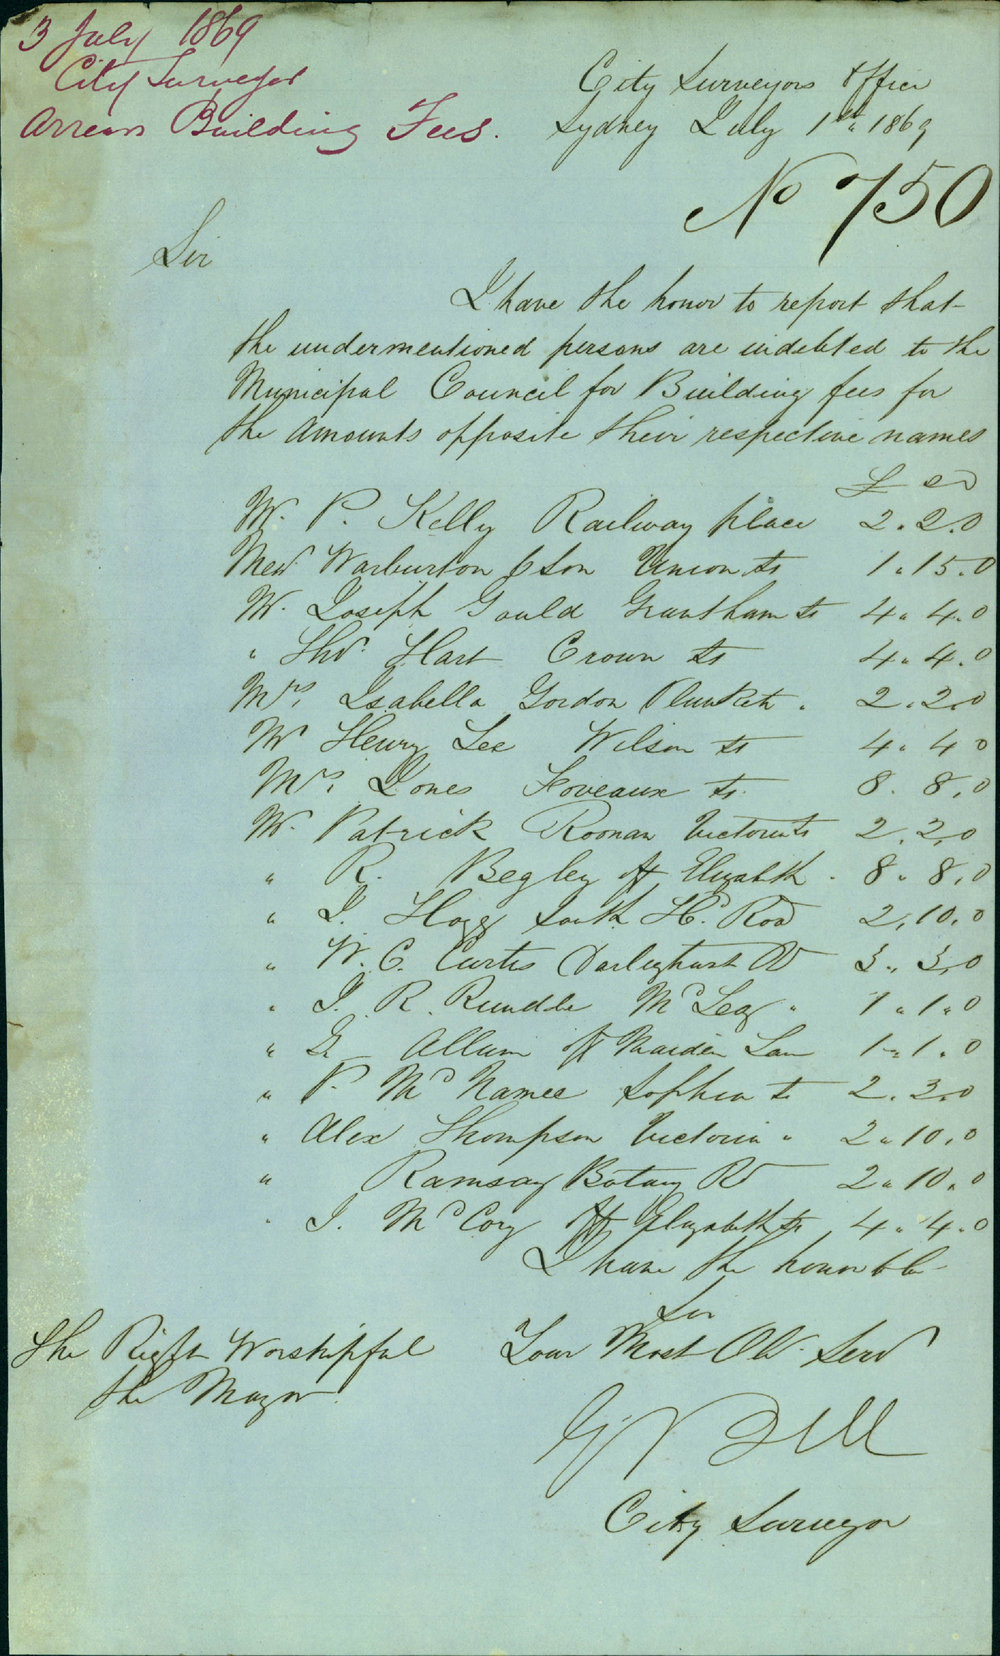 3 July 1869
City Surveyor
Arrears Building Fees.
City Surveyors Office
Sydney July 1st 1869
No 750
Sir
I have the honor to report that
the undermentioned persons are indebted to the
Municipal Council for Building fees for
the Amounts opposite their respective names
£ s D
Mr. P. Kelly Railway place 2.2.0
Messrs Warburton & Son Union St 1.15.0
Mr. Joseph Gould Grantham St 4.4.0
" Thos. Hart Crown St 4.4.0
Mrs. Isabella Gordon Plunkett . 2.2.0
Mr Henry Lee Wilson St 4.4.0
Mrs. Jones Foveaux St. 8.8.0
Mr. Patrick Roonan Victoria St 2.2.0
" R. Begley off Elizabeth . 8.8.0
" J. Hogg South Hd. Road 2.10.0
" W. C. Curtis Darlinghurst Rd 3.3.0
" J. R. Rundle McLeay " 1.1.0
" G Allum off Maiden Lane 1.1.0
" P. McNamee Sophia St 2.2.0
" Alex Thompson Victoria " 2.10.0
" Ramsay Botany Rd 2.10.0
" J. McCoy off Elizabeth St 4.4.0
I have the honor to be
Sir
Your Most Obt. Servt
The Right Worshipful
the Mayor
Bell
City Surveyor